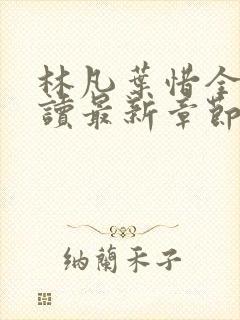 林凡葉惜全
讀最新章節
纳蘭禾子